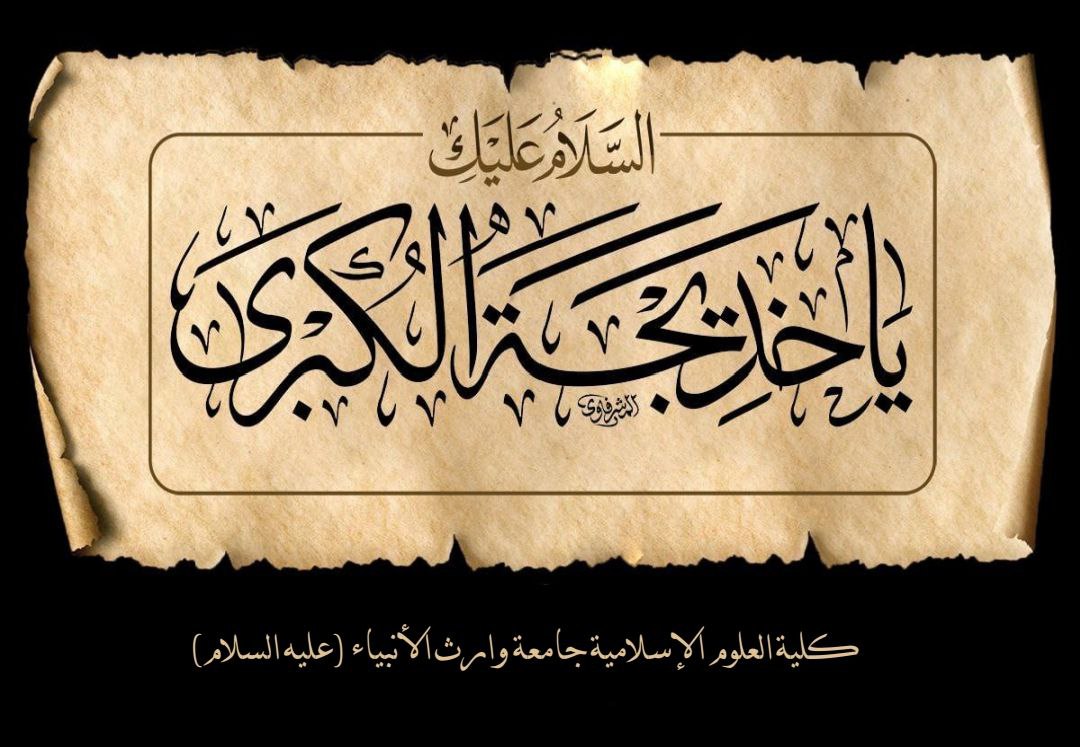 السَّلَامُ عَلَيْكِ
يَا خَدِيجَةُ الْكُبْرَى
المشرفاوي
كلية العلوم الإسلامية جامعة وارث الأنبياء (عليه السلام)